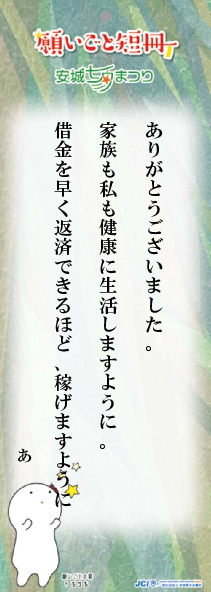 願いごと短冊
安城七夕まつり
ありがとうございました。
家族も私も健康に生活しますように。
借金を早く返済できるほど、稼げますように
あ
JCI